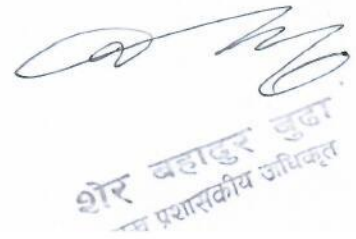 शेर बहादुर बुढा
प्रशासकीय अधिकृत